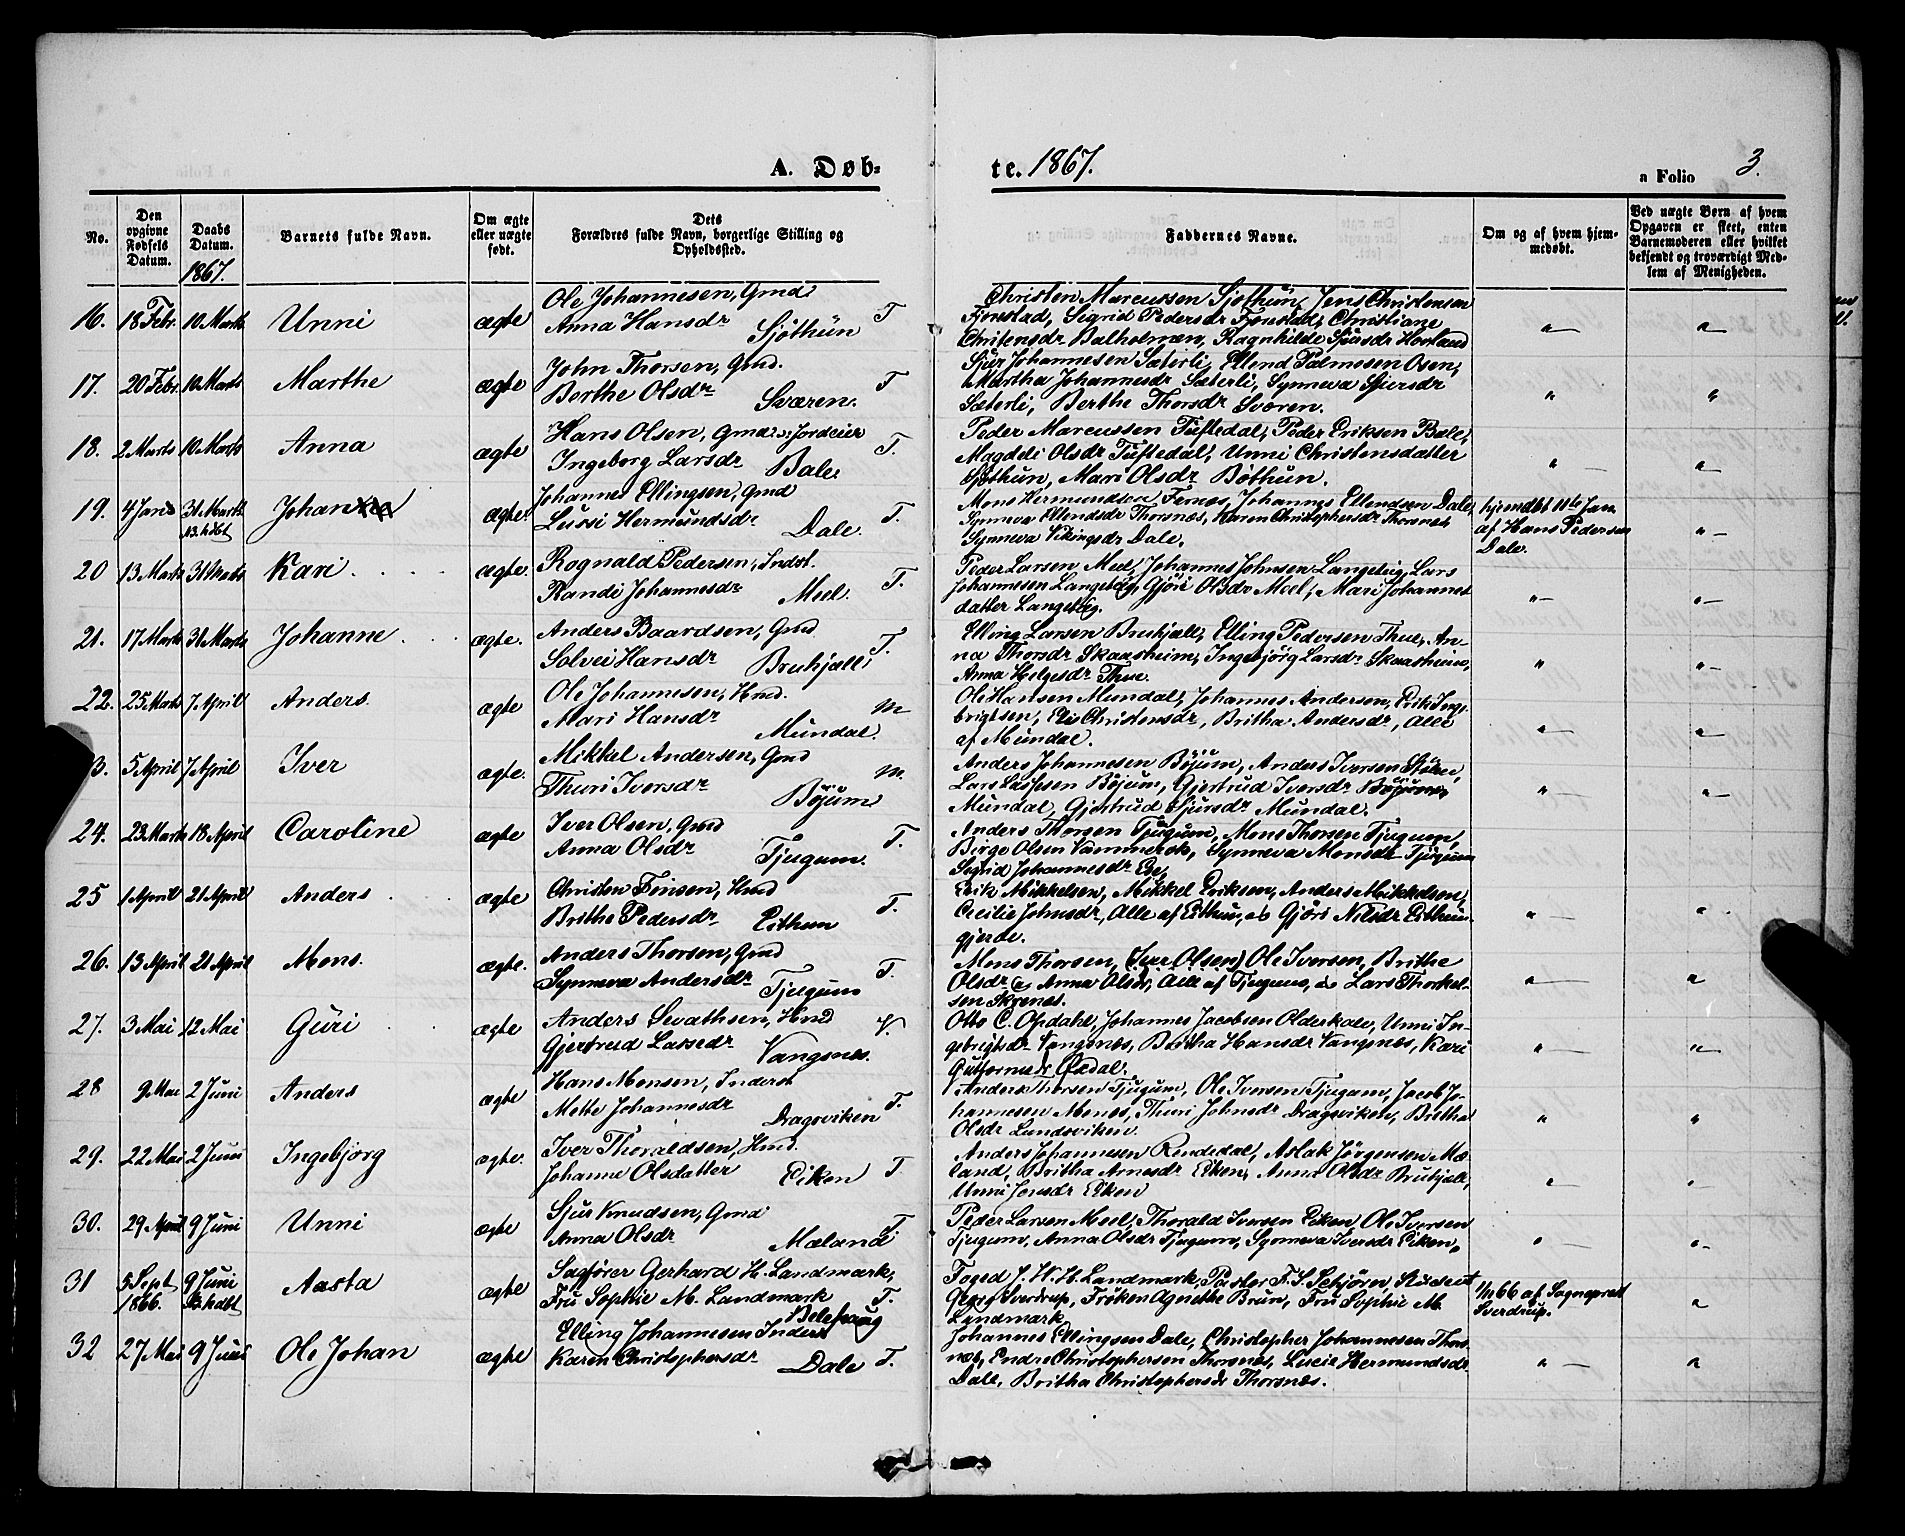 A. Døb-
te. 1867.
a Folio 3.
No.
Den opgivne Fødsels Datum.
Daabs Datum. 1867.
Barnets fulde Navn.
Om ægte eller uægte født.
Dets Forældres fulde Navn, borgerlige Stilling og Opholdssted.
Faddernes Navne.
Om og af hvem hjemmedøbt.
Ved uægte Børn af hvem Opgaven er skeet, enten Barnemoderen eller hvilket bekjendt og troværdigt Medlem af Menigheden.
16. 18 Febr. 10 Marts Unni ægte Ole Johannesen, Gmd Anna Hansdr Sjøthun T
Christen Marcussen Sjøthun, Jens Christensen
Farestad, Sigrid Pedersdr Farestad, Christiane
Christensdr Balholmen, Ragnhilde Sjursdr Hovland
17. 20 Febr. 10 Marts Marthe ægte John Thorsen, Gmd. Berthe Olsdr Sværen. T
Sjur Johannesen Sæterli, Ellend Palmesen Osen,
Martha Johannesdr Sæterli, Synneva Sjursdr
Sæterli, Berthe Thorsdr Sværen.
18. 2 Marts 10 Marts Anna ægte Hans Olsen, Gmd Jordeier Ingeborg Larsdr Bale T.
Peder Marcussen Tuftedal, Peder Eriksen Bale,
Magdeli Olsdr Tuftedal, Unni Christensdatter
Sjøthun, Mari Olsdr Bøthun.
19. 4 Jan 31 Marts Johan ægte Johannes Ellingsen, Gmd Lussi Hermundsdr Dale. T.
Mons Hermundsen Fernæs, Johannes Ellendsen Dale,
Synneva Ellendsdr Thorsnæs, Karen Christophersdr Thorsnæs,
Synneva Vikingsdr Dale.
hjemdbt 11te Jan.
af Hans Pedersen
Dale.
20 13 Marts 31 Marts Kari ægte. Rognald Pedersen, Indst. Randi Johannesdr Meel. T.
Peder Larsen Meel, Johannes Johnsen Langeteig, Lars
Johannesen Langeteig, Gjøri Olsdr Meel, Mari Johannes
datter Langeteig.
21. 17 Marts 31 Marts Johanne ægte. Anders Baardsen, Gmd Solvei Hansdr Bruhjell T.
Elling Larsen Bruhjell, Elling Pedersen Thue, An-
na Thorsdr Skaasheim, Ingebjørg Larsdr Skaasheim,
Anna Helgesdr Thue.
22. 25 Marts 7 April Anders. ægte Ole Johannesen, Hmd. Mari Hansdr Mundal. M
Ole Hansen Mundal, Johannes Andersen, Erik Inge-
brigtsen, Eli Christensdr, Britha Andersdr, Alle
af Mundal.
3. 5 April 7 April Iver ægte. Mikkel Andersen, Gmd Thuri Iversdr Bøjum M.
Anders Johannesen Bøjum, Anders Iversen Støen,
Lars Lassesen Bøjum, Gjertrud Iversdr Bøjum,
Mundal, Gjertrud Sjursdr Mundal.
24. 23 Marts 18 April Caroline ægte Iver Olsen, Gmd Anna Olsdr Tjugum. T.
Anders Thorsen Tjugum, Mons Thorsen Tjugum,
Birge Olsen Vammerok, Synneva Monsdr Tjugum
Sigrid Johannesdr Ese,
25 1 April 21 April Anders ægte Christen Finsen, Hmd Brithe Pedersdr Eithun T.
Erik Mikkelsen, Mikkel Eriksen, Anders Mikkelsen,
Cecilie Johnsdr, Alle af Eithun, Gjøri Nilsdr Eithun-
gjerde.
26. 13 April 21 April Mons. ægte. Anders Thorsen, Gmd Synneva Andersdr Tjugum T.
Mons Thorsen, (Iver Olsen) Ole Iversen, Brithe
Olsdr Anna Olsdr, Alle af Tjugum, Lars Thorkel-
sen Skrenæs.
27. 3 Mai 12 Mai Guri ægte Anders Sevathsen, Hmd Gjertrud Lassedr Vangsnes. V.
Otto C. Opdahl, Johannes Jacobsen Olderkale, Unni In-
gebrigtsdr Vangsnæs, Britha Hansdr Vangsnæs, Kari
Guttormsdr Oxdal.
28 9 Mai 2 Juni Anders ægte Hans Monsen, Inderst Mette Johannesdr Dragsviken T.
Anders Thorsen Tjugum, Ole Iversen Tjugum, Jacob Jo-
hannesen Menes, Thuri Johnsdr Dragsviken, Britha
Olsdr Lundsviken.
29. 22 Mai 2 Juni Ingebjørg ægte. Iver Thoraldsen, Hmd. Johanne Olsdatter Eiken T.
Anders Johannesen Rendedal, Aslak Jørgensen Mæ-
land, Britha Arnesdr Eiken, Anna Olsdr Bruhjell,
Unni Jensdr Eiken
30. 29 April 9 Juni Unni ægte Sjur Knudsen, Gmd Anna Olsdr Mæland T
Peder Larsen Meel, Thorald Iversen Eiken, Ole Iversen
Tjugum, Anna Olsdr Tjugum, Synneva Iversdr Eiken,
31 5 Sept 1866. 9 Juni Aasta ægte Sagfører Gerhard H. Landmark, Fru Sophie M. Landmark Belehaug T.
Foged J. W. H. Landmark, Pastor F. S. Schjørn,
Georg Sverdrup, Frøken Agnethe Brun, Fru Sophie M.
Landmark
66 af Sognepræst
Sverdrup.
32 27 Mai 9 Juni Ole Johan ægte Elling Johannesen Inderst Karen Christophersdr Dale T.
Johannes Ellingsen Dale, Christopher Johannesen Thors-
næs, Endre Christophersen Thorsnæs, Lucie Hermundsdr
Dale, Britha Christophersdr Thorsnæs.